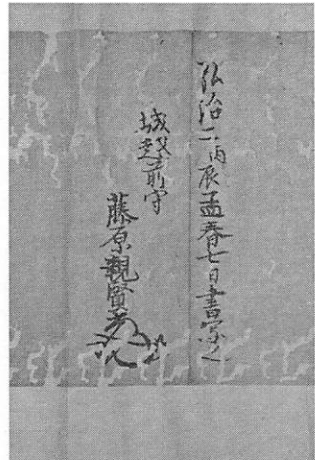 弘治二丙辰孟春七日書写之
城越前守
藤原親賢